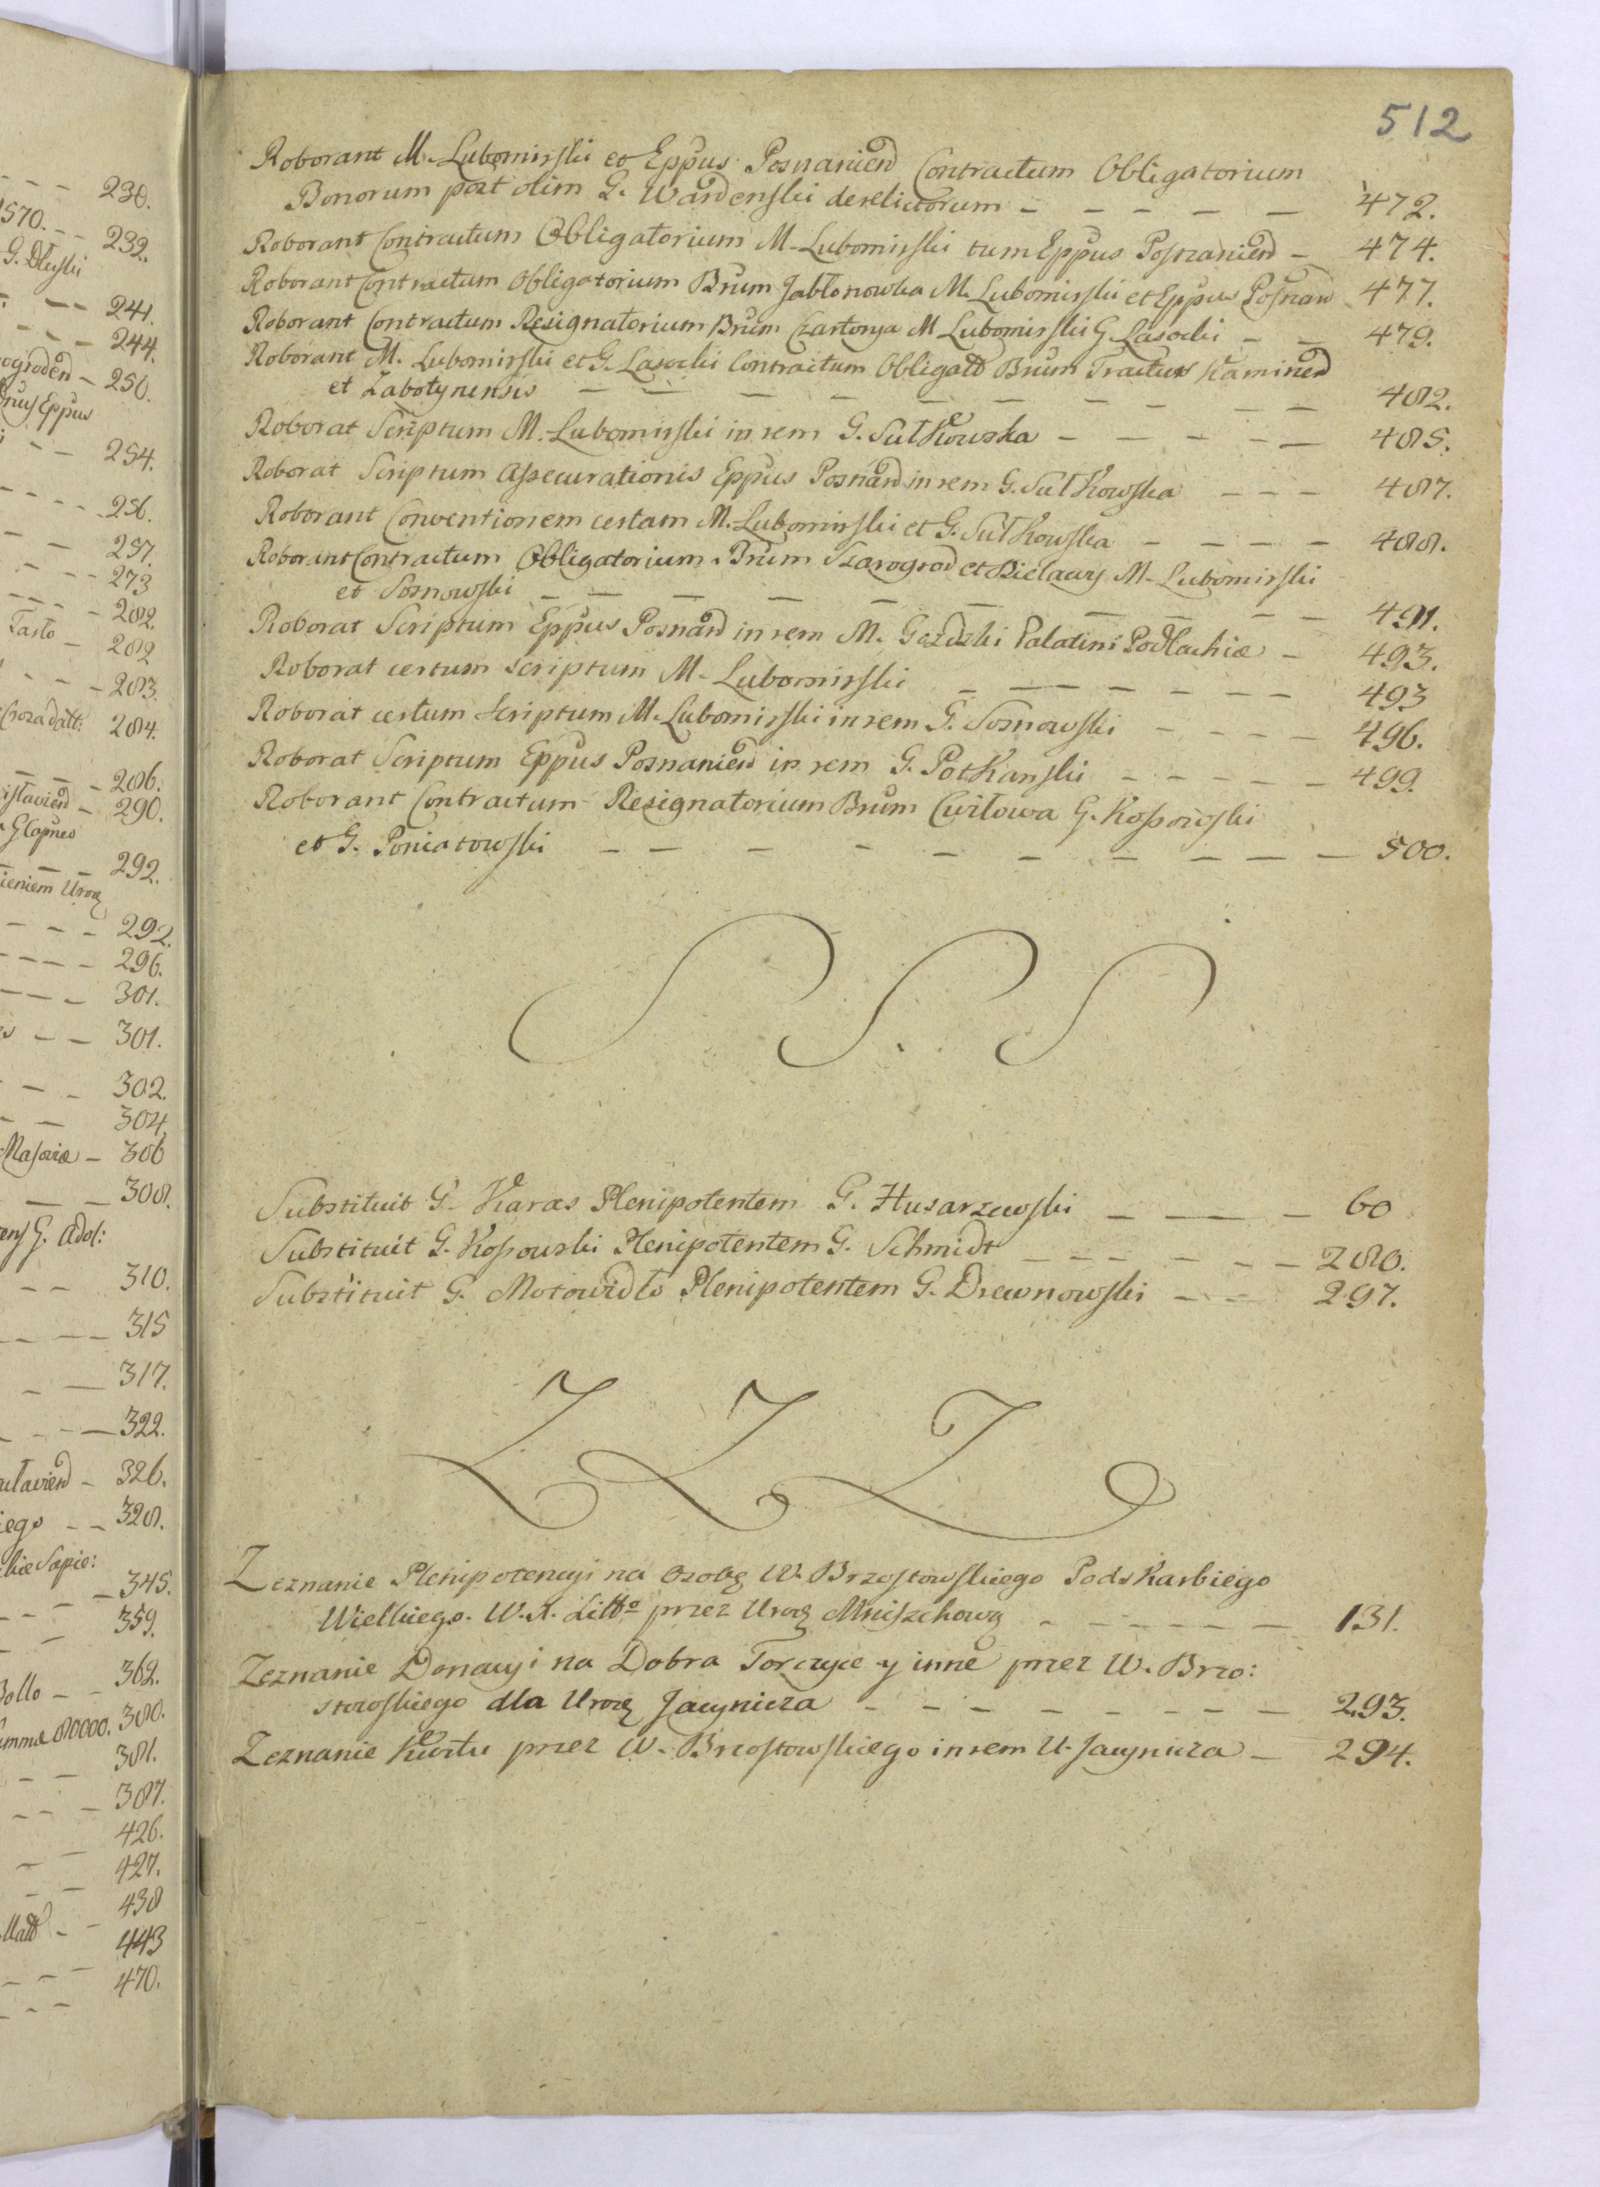 512
Roborant M. Lubomirski et Eppus Posnanień Contractum Obligatorium
Bonorum post olim G. Wardenski derelictorum - - - - - 472.
Roborant Contractum Obligatorium M. Lubomirski cum Eppus Posnanień - 474.
Roborant Contractum Obligatorium Brum Jabłonowka M. Lubomirski et Eppus Posnań 477.
Roborant Contractum Resignatorium Brum Czartorya M Lubomirski G Lasocki - - 479.
Roborant M. Lubomirski et G. Lasocki Contractum Obligatō Brum Tractus Kaminen
et Zabotynensis - - - - - - - - - - 482.
Roborat Scriptum M. Lubomirski in rem G. Sułkowska - - - - - 485.
Roborat Scriptum Assecurationis Eppus Posnań in rem G. Sułkowska - - - 487.
Roborant Conventionem certam M. Lubomirski et G. Sułkowska - - - - 488.
Roborant Contractum Obligatorium Brum Szarogrod et M. Lubomirski
et Sosnowski - - - - - - - - - - 491.
Roborat Scriptum Eppus Posnań in rem M. Gozdzki Palatini Podlachiæ - 493.
Roborat certum scriptum M. Lubomirski - - - - - - - 493
Roborat certum scriptum M. Lubomirski in rem G. Sosnowski - - - - 496.
Roborat Scriptum Eppus Posnanień in rem G. Potkanski - - - - - 499.
Roborant Contractum Resignatorium Brum Cwiłowa G. Kossowski
et G. Poniatowski - - - - - - - - - - 500.
S S S
Substituit G. Karas Plenipotentem G. Husarzewski - - - 60
Substituit G. Kossowski Plenipotentem G. Schmidt - - - - - - 280.
Substituit G. Motowidło Plenipotentem G. Drewnowski - - - 297.
Z Z Z
Zeznanie Plenipotencyi na osobę W. Brzostowskiego Podskarbiego
Wielkiego. W. X. Littō przez Urox Mniszchową - - - - - - 131.
Zeznanie Donacyi na Dobra Torczyce y inne przez W. Brzo:
stowskiego dla Urox Jacynicza - - - - - - - - 293.
Zeznanie Kwitu przez W. Brzostowskiego in rem U. Jacynicza - 294.
230.
1570. - - 232.
G. Dłuski
- - - 241.
- - - 244.
- 250.
Eppus
- - 254.
- - - - 256.
- - 257.
- - - 273
- - - - 282.
Tarło - 282
- - - 283.
284.
- - - 286.
- 290.
- - - 292.
- - - 292.
- - - - 296.
- - - 301.
- - 301.
- - - 302.
- - 304.
- 306
- - 308.
G. Adol:
- - 310.
- - - - 315
- - 317.
- - - 322.
- 326.
- - 328.
Sapie:
- 345.
- - - 359.
- - 362.
380.
381.
- - - 387.
426.
- - 427.
- - 438
- - 443
- - - 470.